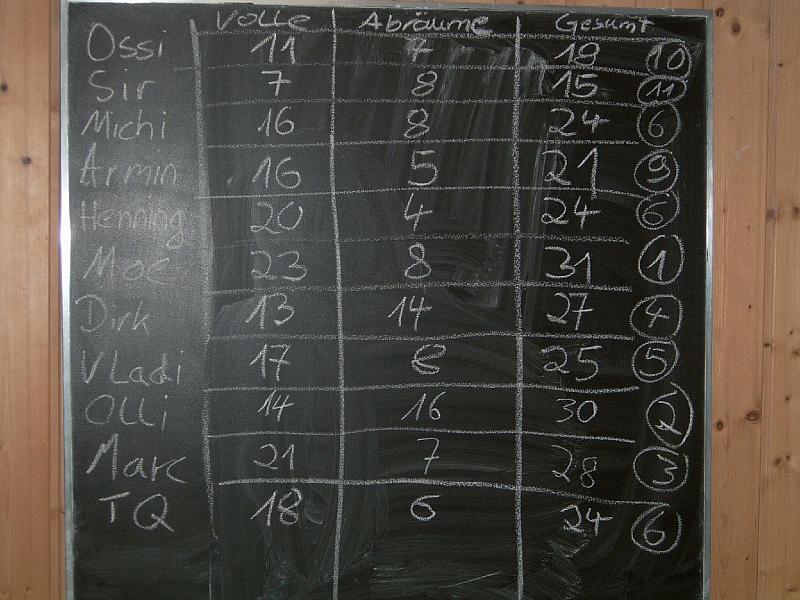 Volle Abräume Gesamt
Ossi 11 7 18 10
Sir 7 8 15 11
Michi 16 8 24 6
Armin 16 5 21 9
Henning 20 4 24 6
Moc 23 8 31 1
Dirk 13 14 27 4
Vladi 17 8 25 5
Olli 14 16 30 2
Marc 21 7 28 3
TQ 18 6 24 6